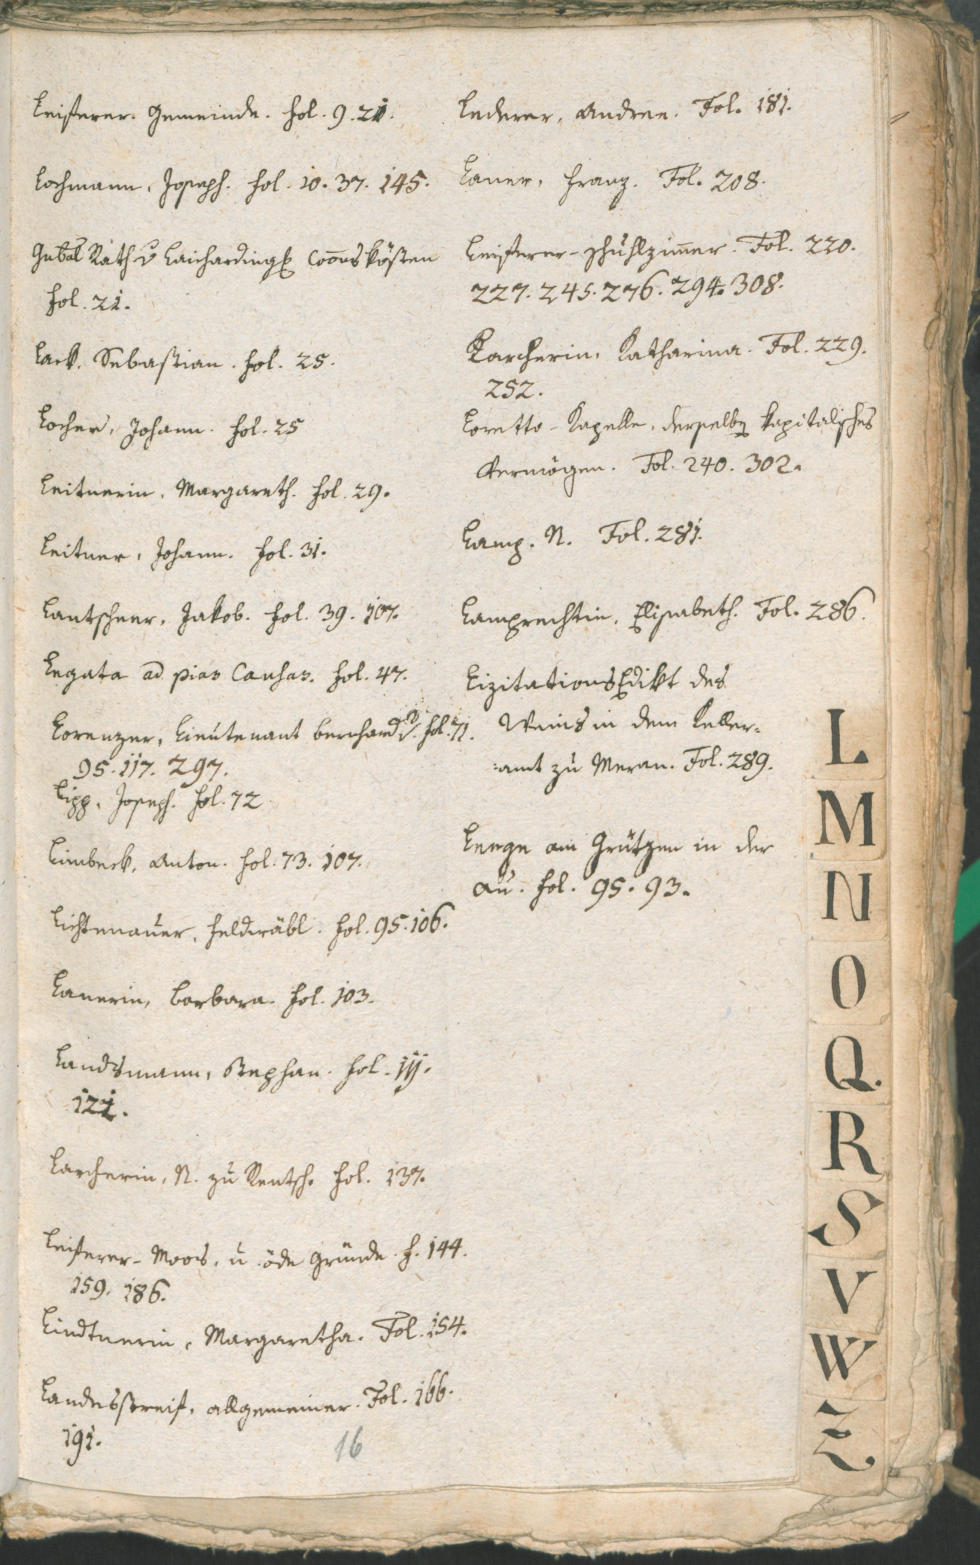 Leiferer. Gemeinde. fol. 9. 21.
Lochmann, Joseph. fol. 10. 37. 145.
Gubal Rath v Laicharding Coons kösten
fol. 21.
Lack. Sebastian. fol. 25.
Locher, Johann. fol. 25
Leitnerin, Margareth. fol. 29.
Leitner, Johann. fol. 31.
Lantschner, Jakob. fol. 39. 107.
Legata ad pias Causas. fol. 47.
Lorenzer, Lieutenant bernhard fol. 71.
95. 117. 297.
Lipp, Joseph. fol. 72
Limbeck, Anton. fol. 73. 107.
Lichtenauer, fol. 95. 106.
Lanerin, barbara. fol. 103.
Landsmann, Stephan. fol. 111.
121.
Larcherin, N. zu Rentsch. fol. 137.
Leiferer-Moos, u. öde Gründe. f. 144.
159. 186.
Lindtnerin, Margaretha. Fol. 154.
Landesstreif, allgemeiner. Fol. 166.
191.
16
Lederer, Andree. Fol. 181.
Laner, Franz. Fol. 208.
Leiferer-Schuhlzimmer. Fol. 220.
227. 245. 276. 294. 308.
Larcherin, Katharina. Fol. 229.
252.
Loretto-Kapelle, derselben kapitalisches
Vermögen. Fol. 240. 302.
Lamp. N. Fol. 281.
Lamprechtin, Elisabeth. Fol. 286.
Lizitations Edikt des
Weins in dem Keller-
amt zu Meran. Fol. 289.
Leege am Grützen in der
Au. fol. 95. 93.
L
M
N
O
Q.
R
S
V
W
Z.